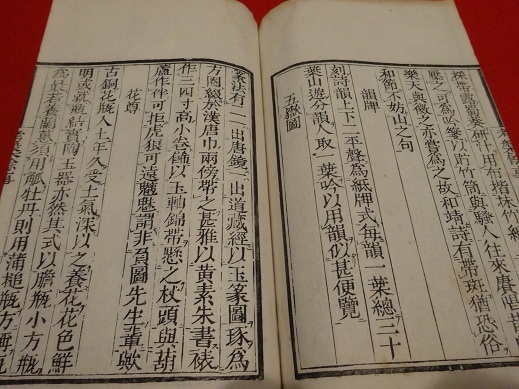 採帶露蜀葵研汁用布揩抹竹
壓之可為吟箋以貯竹筒與騷人往來賡唱昔
樂天與微之亦嘗為之故和靖詩有帶斑猶恐俗
和節不妨山之句
韻牌
刻詩韻上下二平聲為紙牌式每韻一葉總三十
葉山遊分韻人取一葉吟以用韻似甚便覽
五嶽圖
篆法有二一出唐鏡一出道藏經以玉篆圖琢為
方圓綴於漢唐巾兩傍帶之甚雅以黃素朱書裱
作三四寸高小卷飾以玉軸錦帶懸之杖頭與葫
蘆作伴可拒虎狼可遠魑魅謂非負圖先生輩歟
花尊
古銅花瓶入土年久受土氣深以之養花花色鮮
明或就瓶結實陶玉器亦然其式以膽瓶小方瓶
為最若養蘭蕙須用觚牡丹則用蒲槌瓶方